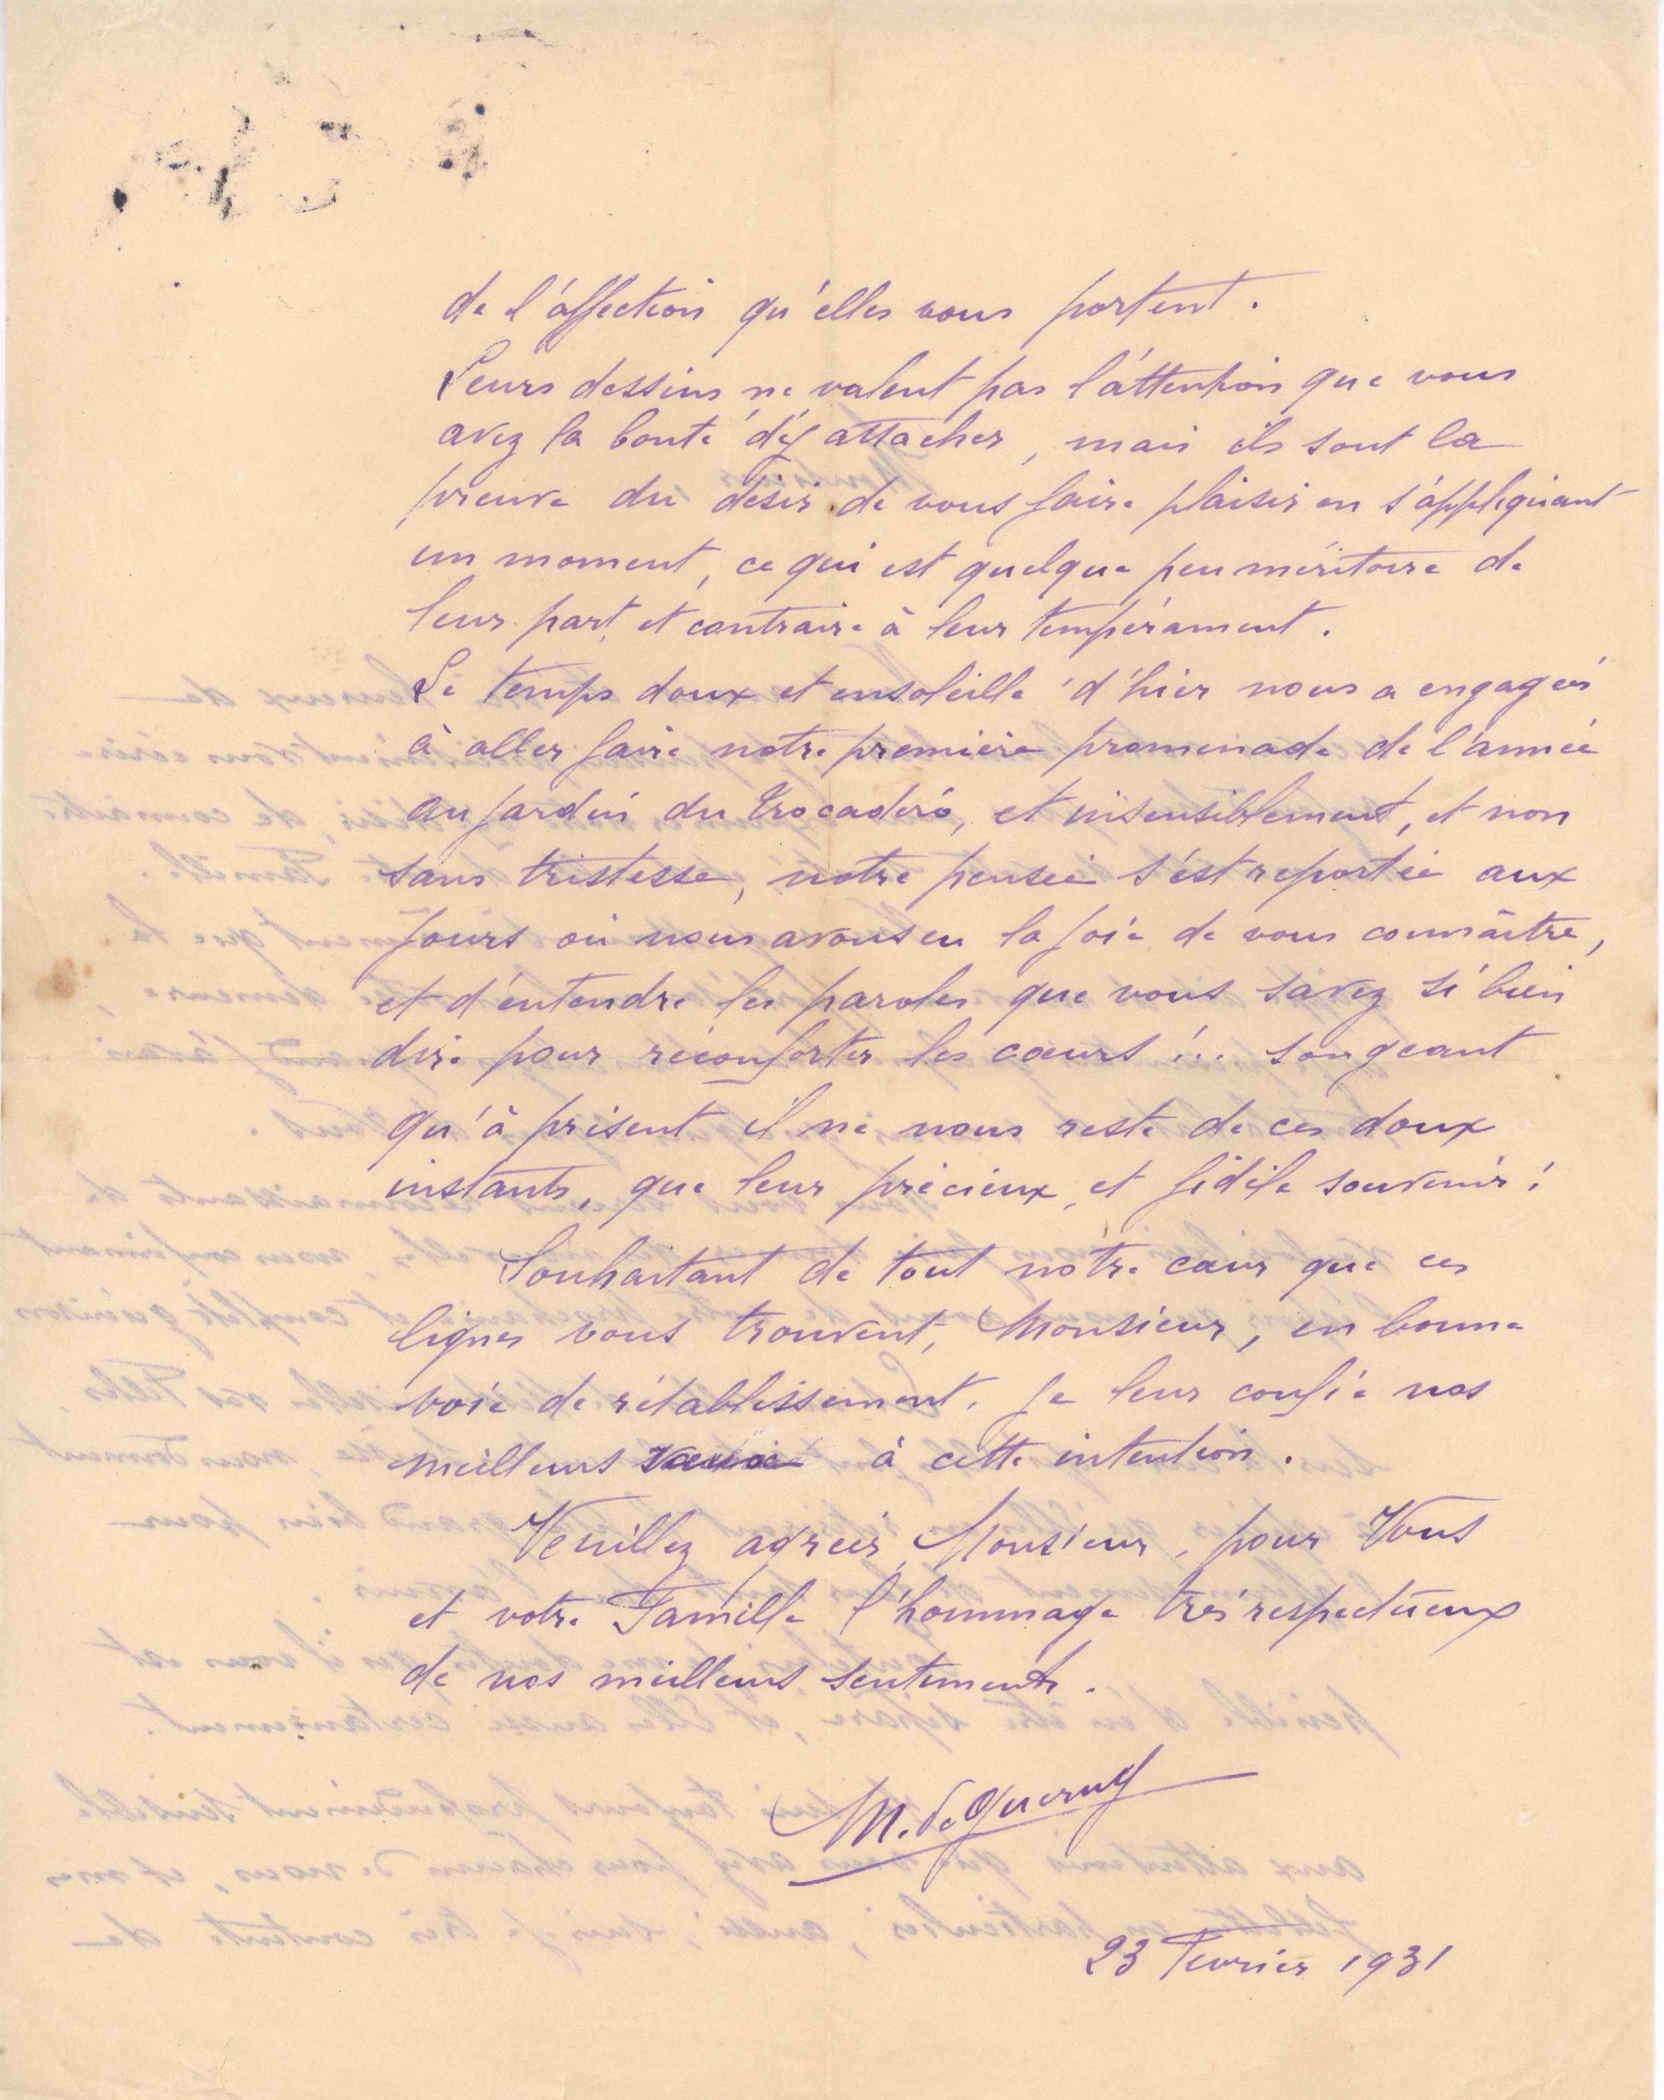 de l'affection qu'elles vous portent.
Leurs dessins ne valent pas l'attention que vous
avez la bonté d'y attacher, mais ils sont la
preuve du désir de vous faire plaisir en s'appliquant
un moment, ce qui est quelque peu méritoire de
leur part, et contraire à leur tempérament.
Le temps doux et ensoleillé d'hier nous a engagés
à aller faire notre première promenade de l'année
au jardin du Trocadéro, et insensiblement, et non
sans tristesse, notre pensée s'est reportée aux
jours où nous avons eu la joie de vous connaître,
et d'entendre les paroles que vous savez si bien
dire pour réconforter les cœurs !.. songeant
qu'à présent il ne nous reste de ces doux
instants, que leur précieux, et fidèle souvenir !
Souhaitant de tout notre cœur que ces
lignes vous trouvent, Monsieur, en bonne
voie de rétablissement, je leur confie nos
meilleurs vœux à cette intention.
Veuillez agréer, Monsieur, pour Vous
et votre Famille l'hommage très respectueux
de nos meilleurs sentiments.
M. de
23 Février 1931